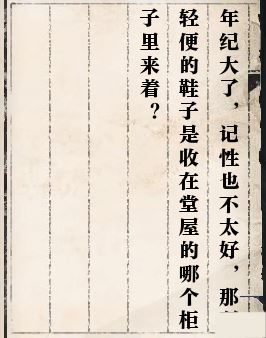 年纪大了，记性也不太好，那
轻便的鞋子是收在堂屋的哪个柜
子里来着？